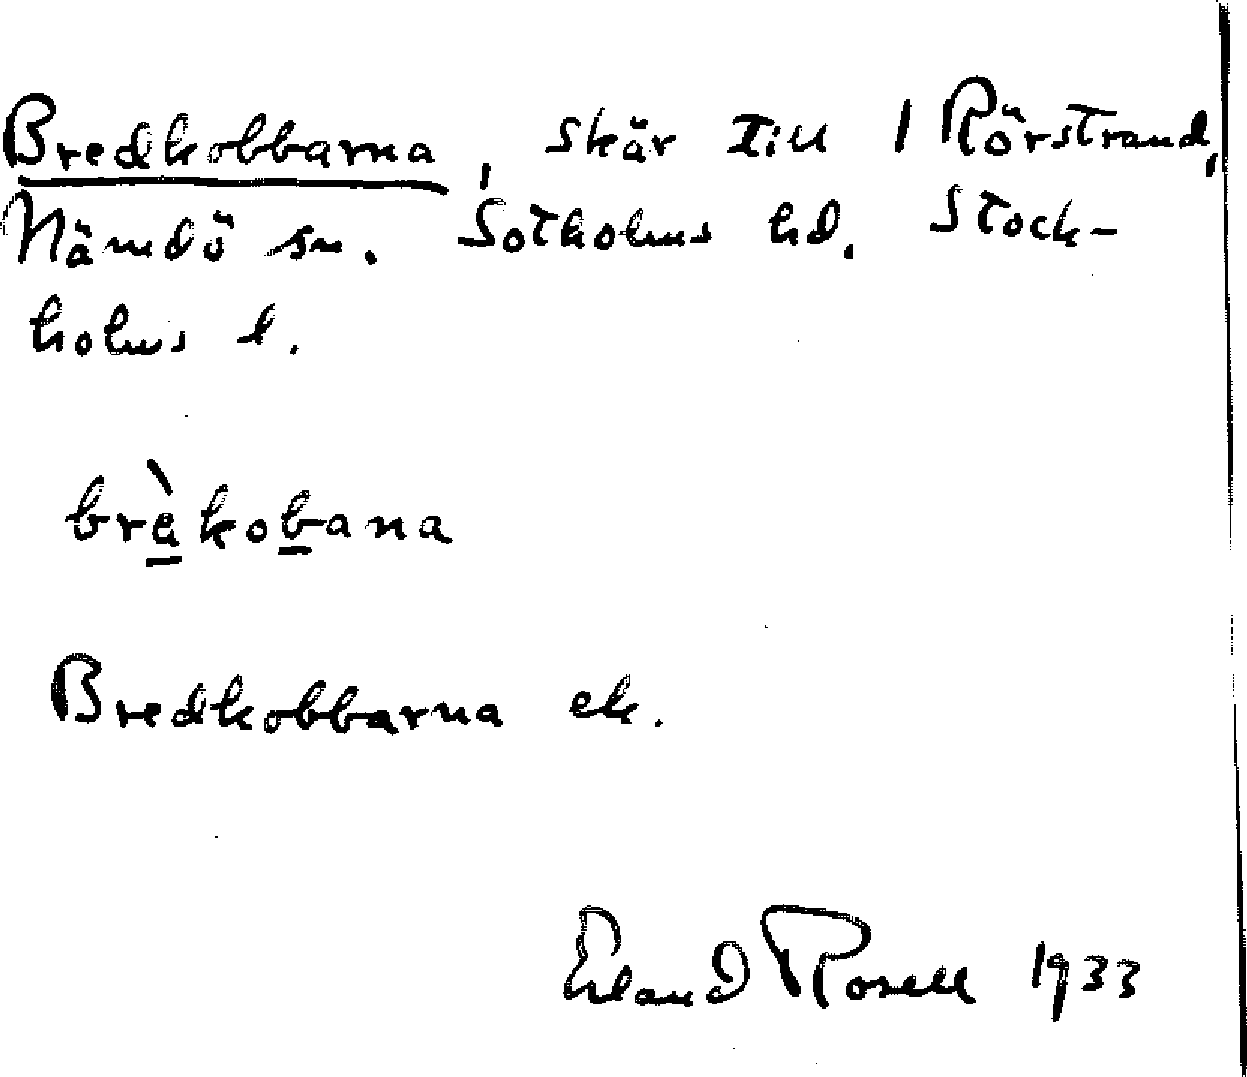 Bredkobbarna, skär till 1 Rörstrand,
Nämdö sn. Sotholms hd. Stock-
holms l.
brèkobana
Bredkobbarna ek.
Erland Rosell 1933